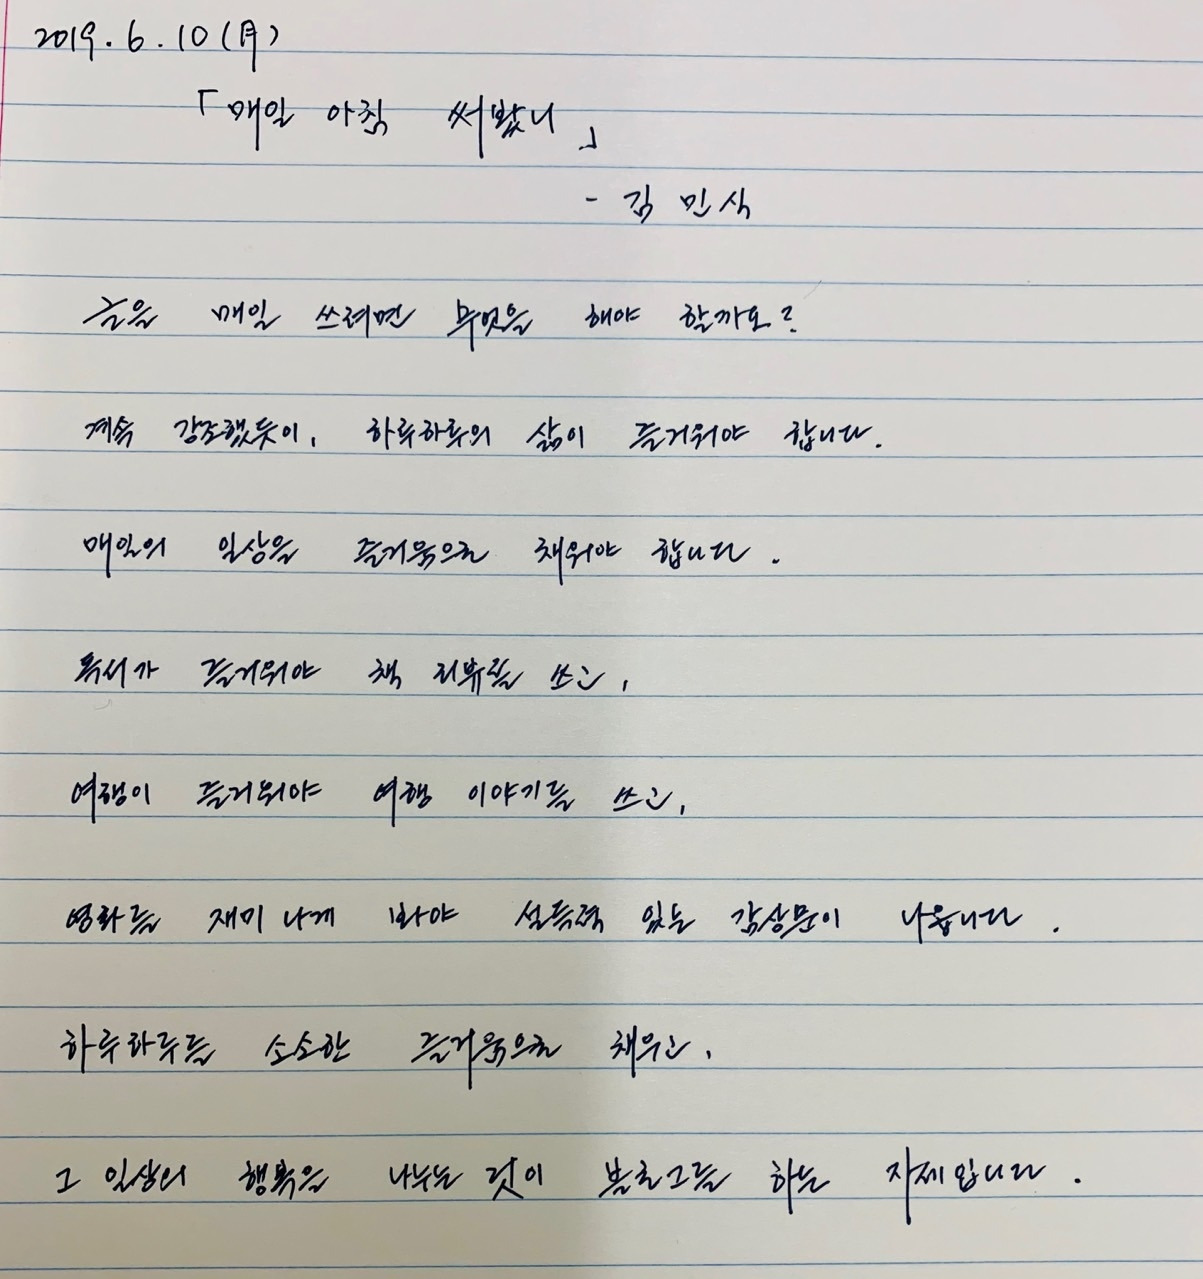 2019. 6. 10 (月)
「매일 아침 써봤니」
- 김민식
글을 매일 쓰려면 무엇을 해야 할까요?
계속 강조했듯이, 하루하루의 삶이 즐거워야 합니다.
매일의 일상을 즐거움으로 채워야 합니다.
독서가 즐거워야 책 리뷰를 쓰고,
여행이 즐거워야 여행 이야기를 쓰고,
영화를 재미나게 봐야 설득력 있는 감상문이 나옵니다.
하루하루를 소소한 즐거움으로 채우고,
그 일상의 행복을 나누는 것이 블로그를 하는 자세입니다.